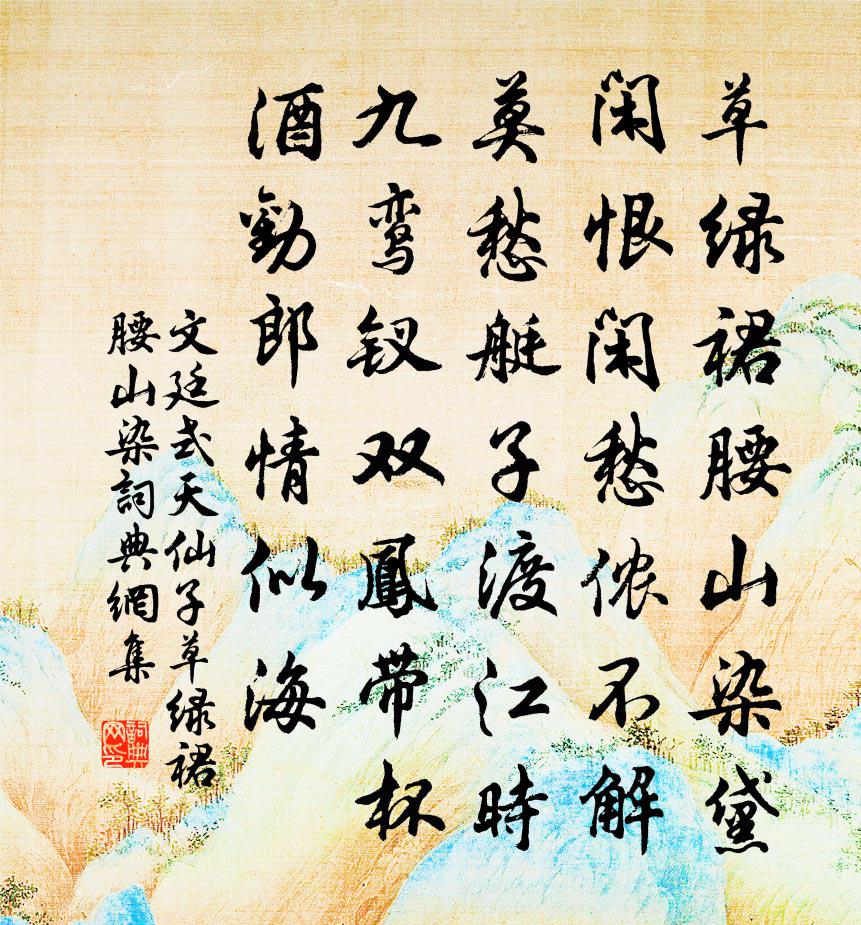 草绿裙腰山染黛
闲恨闲愁侬不解
莫愁艇子渡江時
九鸾钗双鳳带杯
酒勸郎情似海
文廷式天仙子草绿裙
腰山染詞典網集
詞典網印